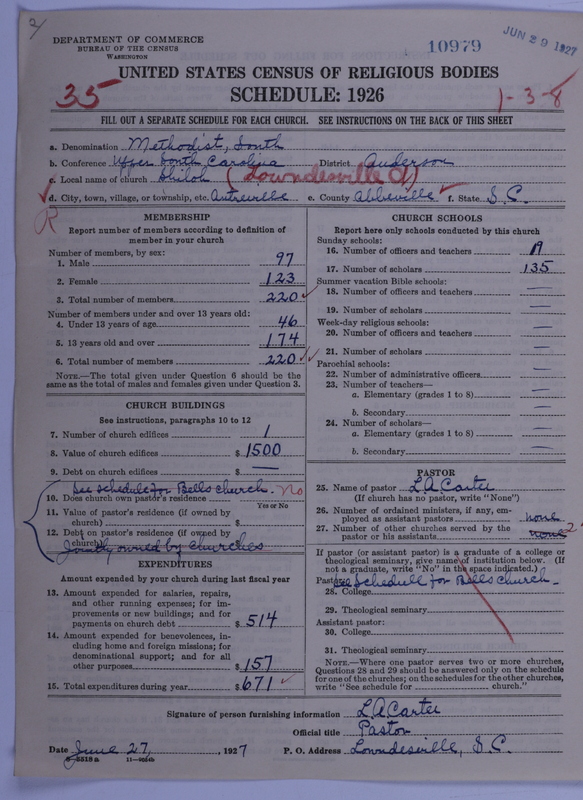 2/
DEPARTMENT OF COMMERCE
BUREAU OF THE CENSUS
WASHINGTON
10979
JUN 29 1927
UNITED STATES CENSUS OF RELIGIOUS BODIES
SCHEDULE: 1926
35
1-3-8
FILL OUT A SEPARATE SCHEDULE FOR EACH CHURCH. SEE INSTRUCTIONS ON THE BACK OF THIS SHEET
a. Denomination Methodist, South
b. Conference Upper South Carolina District Anderson
c. Local name of church Shiloh (Lowndesville C)
d. City, town, village, or township, etc. Antreville e. County Abbeville f. State S.C.
R
MEMBERSHIP
Report number of members according to definition of member in your church
Number of members, by sex:
1. Male 97
2. Female 123
3. Total number of members 220
Number of members under and over 13 years old:
4. Under 13 years of age 46
5. 13 years old and over 174
6. Total number of members 220
NOTE.—The total given under Question 6 should be the same as the total of males and females given under Question 3.
CHURCH BUILDINGS
See instructions, paragraphs 10 to 12
7. Number of church edifices 1
8. Value of church edifices $ 1500
9. Debt on church edifices $ —
See schedule for Bells church. No
10. Does church own pastor's residence
Yes or No
11. Value of pastor's residence (if owned by church) $
12. Debt on pastor's residence (if owned by church)
Jointly owned by churches
EXPENDITURES
Amount expended by your church during last fiscal year
13. Amount expended for salaries, repairs, and other running expenses; for improvements or new buildings; and for payments on church debt $ 514
14. Amount expended for benevolences, including home and foreign missions; for denominational support; and for all other purposes $ 157
15. Total expenditures during year $ 671
CHURCH SCHOOLS
Report here only schools conducted by this church
Sunday schools:
16. Number of officers and teachers 19
17. Number of scholars 135
Summer vacation Bible schools:
18. Number of officers and teachers —
19. Number of scholars —
Week-day religious schools:
20. Number of officers and teachers —
21. Number of scholars —
Parochial schools:
22. Number of administrative officers —
23. Number of teachers—
a. Elementary (grades 1 to 8) —
b. Secondary —
24. Number of scholars—
a. Elementary (grades 1 to 8) —
b. Secondary —
PASTOR
25. Name of pastor L A Carter
(If church has no pastor, write "None")
26. Number of ordained ministers, if any, employed as assistant pastors none
27. Number of other churches served by the pastor or his assistants none 2
If pastor (or assistant pastor) is a graduate of a college or theological seminary, give name of institution below. (If not a graduate, write "No" in the space indicated.)
Pastor: See Schedule for Bells church
28. College
29. Theological seminary
Assistant pastor:
30. College
31. Theological seminary
NOTE.—Where one pastor serves two or more churches, Questions 28 and 29 should be answered only on the schedule for one of the churches; on the schedules for the other churches, write "See schedule for church."
Signature of person furnishing information L A Carter
Official title Pastor
Date June 27, 1927 P. O. Address Lowndesville, S.C.